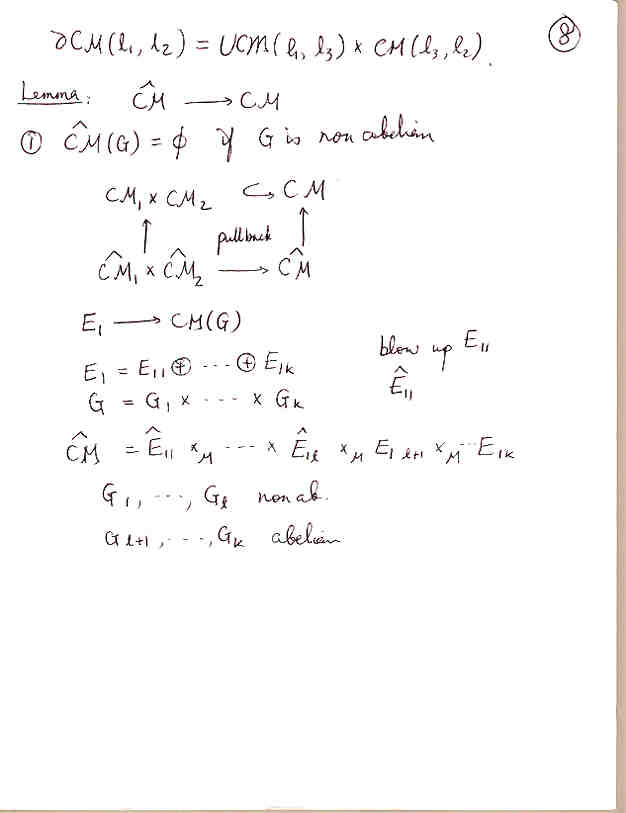 ⑧
∂CM(l₁, l₂) = UCM(l₁, l₃) × CM(l₃, l₂).
Lemma: ĈM → CM
① ĈM(G) = φ if G is non abelian
CM₁ × CM₂ ↪ CM
↑ pullback ↑
ĈM₁ × ĈM₂ → ĈM
E₁ → CM(G)
E₁ = E₁₁ ⊕ ... ⊕ E₁ₖ blow up E₁₁
G = G₁ × ... × Gₖ Ê₁₁
ĈM = Ê₁₁ ×_M ... × Ê₁ₗ ×_M E₁ ₗ₊₁ ×_M ... E₁ₖ
G₁, ..., Gₗ non ab.
Gₗ₊₁, ..., Gₖ abelian